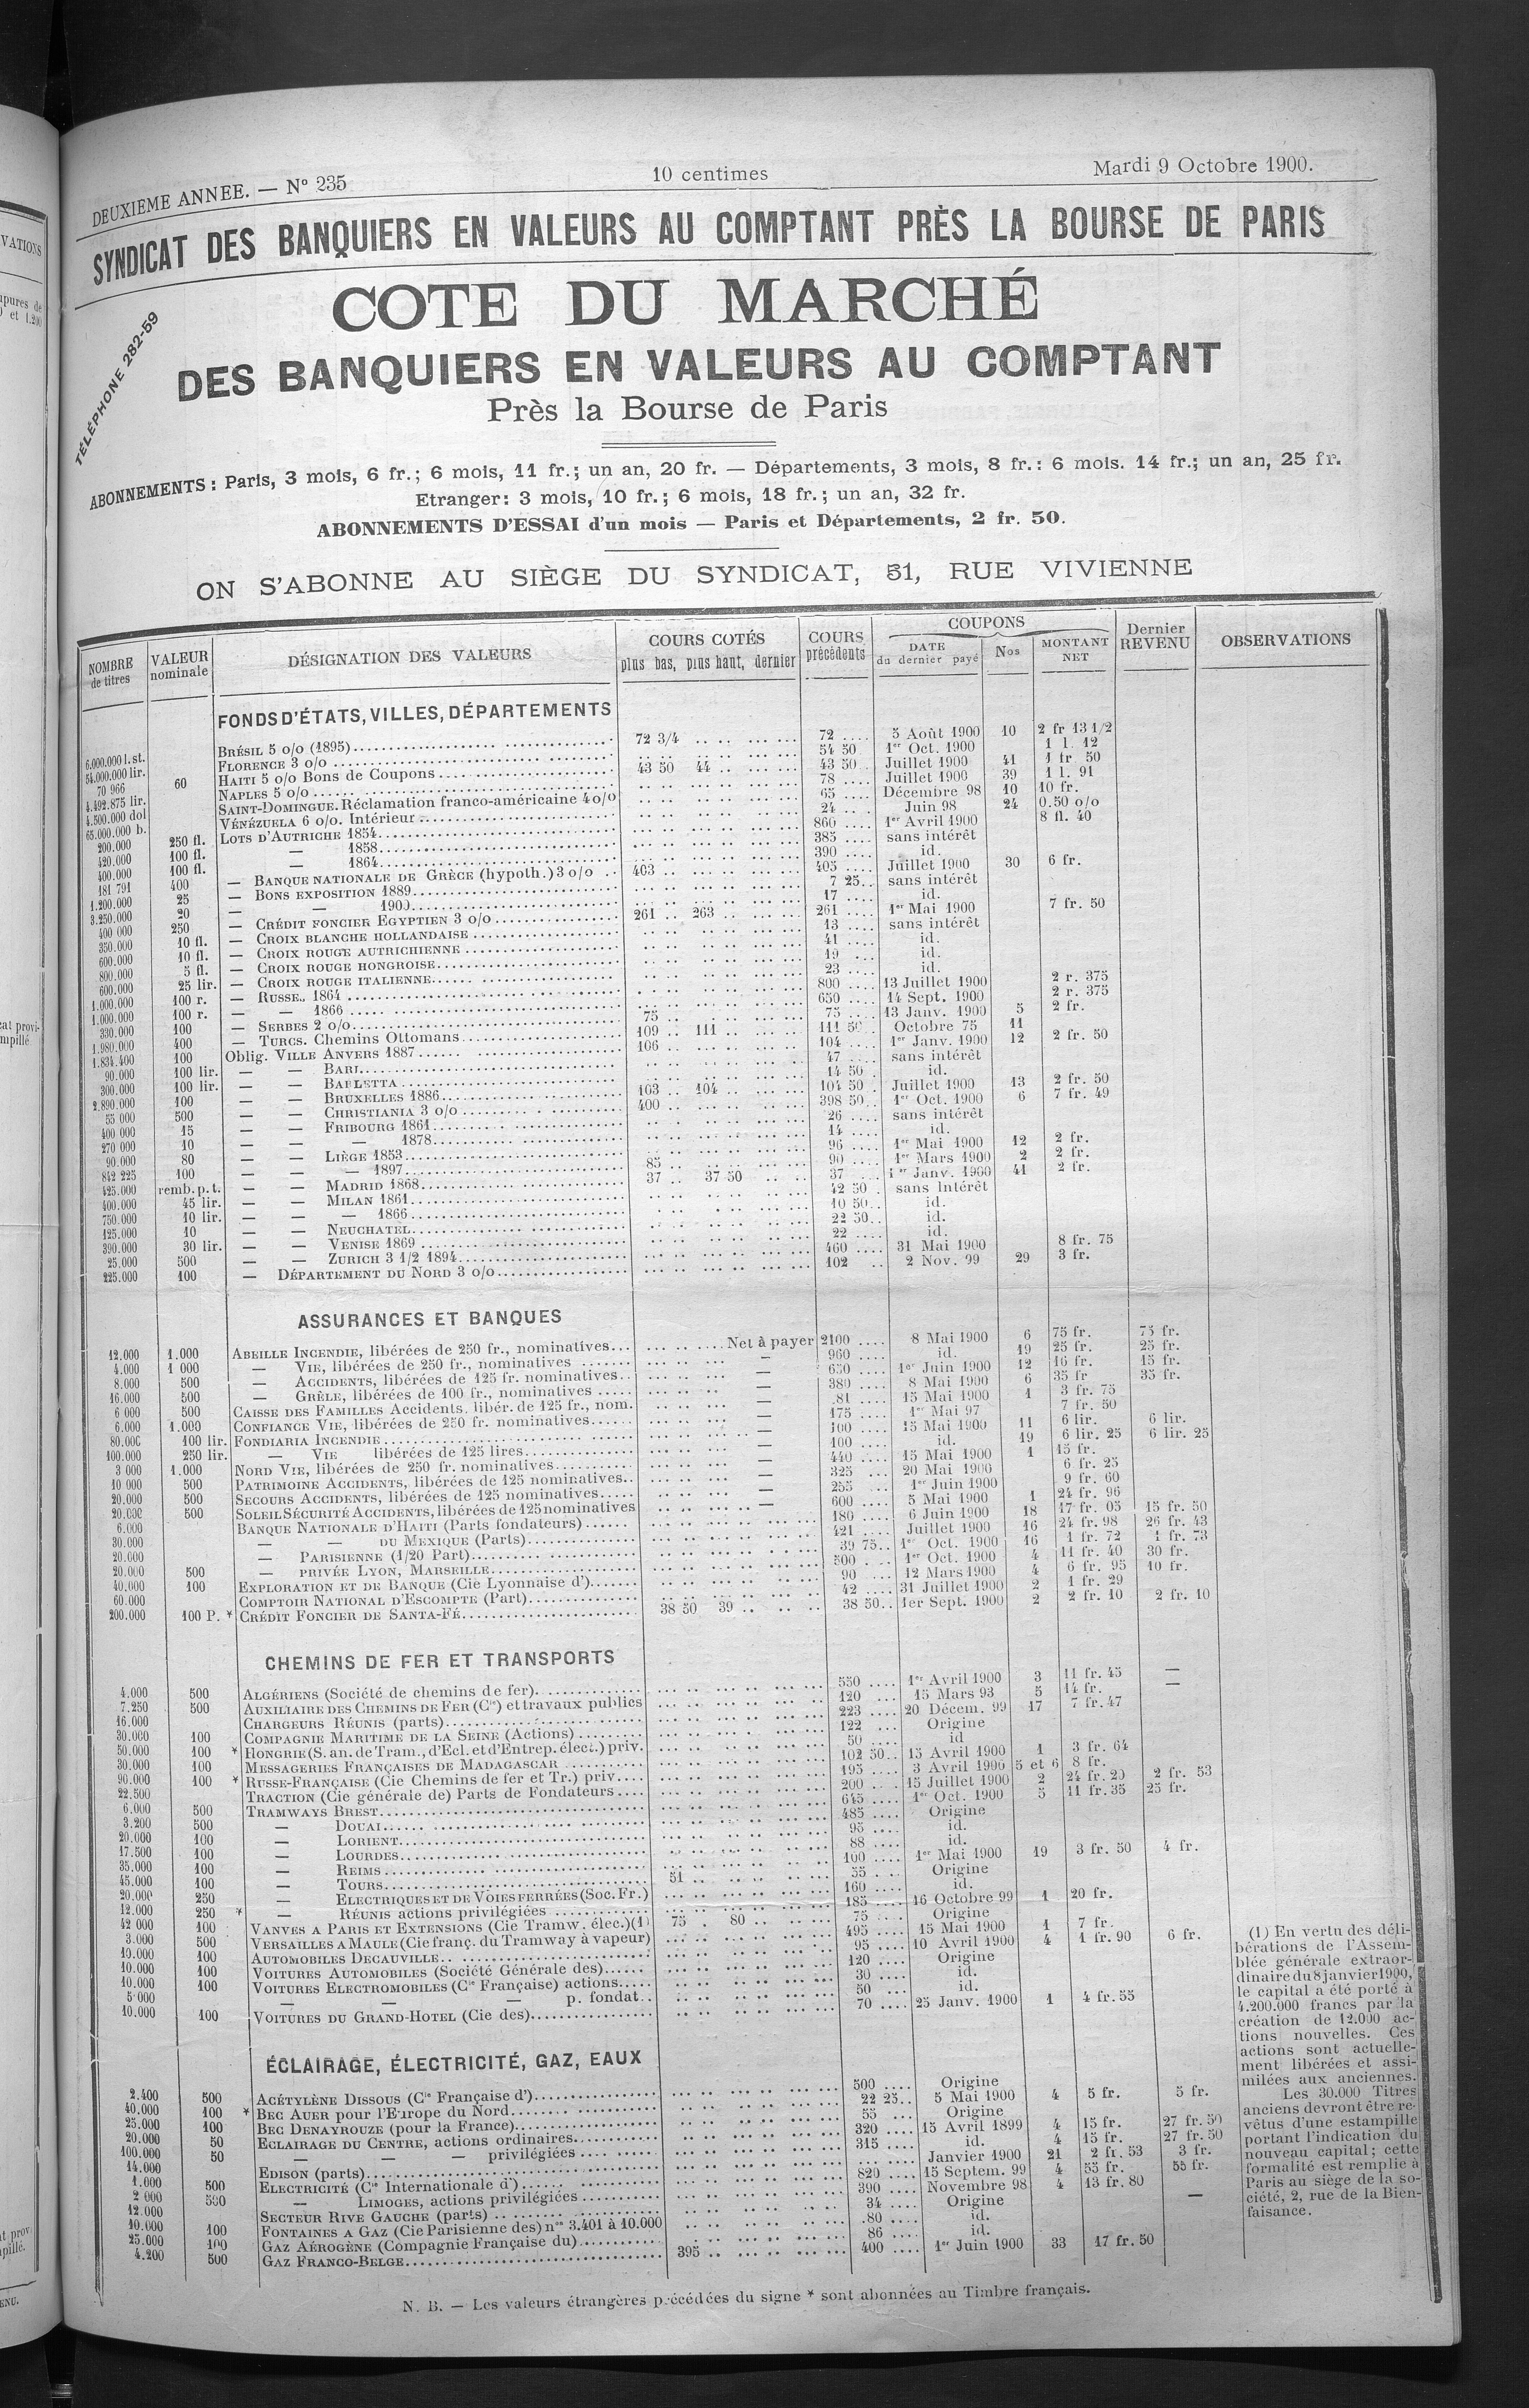 DEUXIEME ANNEE. — N° 235
10 centimes
Mardi 9 Octobre 1900.
SYNDICAT DES BANQUIERS EN VALEURS AU COMPTANT PRÈS LA BOURSE DE PARIS
TÉLÉPHONE 282-59
COTE DU MARCHÉ
DES BANQUIERS EN VALEURS AU COMPTANT
Près la Bourse de Paris
ABONNEMENTS : Paris, 3 mois, 6 fr.; 6 mois, 11 fr.; un an, 20 fr. — Départements, 3 mois, 8 fr.: 6 mois. 14 fr.; un an, 25 fr.
Etranger: 3 mois, 10 fr.; 6 mois, 18 fr.; un an, 32 fr.
ABONNEMENTS D'ESSAI d'un mois — Paris et Départements, 2 fr. 50.
ON S'ABONNE AU SIÈGE DU SYNDICAT, 51, RUE VIVIENNE
NOMBRE de titres | VALEUR nominale | DÉSIGNATION DES VALEURS | COURS COTÉS plus bas, plus haut, dernier | COURS précédents | COUPONS DATE du dernier payé | Nos | MONTANT NET | Dernier REVENU | OBSERVATIONS
FONDS D'ÉTATS, VILLES, DÉPARTEMENTS
6.000.000 l. st. BRÉSIL 5 o/o (1895) 72 3/4 72 5 Août 1900 10 2 fr 13 1/2
54.000.000 lir. FLORENCE 3 o/o 54 50 1er Oct. 1900 1 l. 12
70 966 60 HAITI 5 o/o Bons de Coupons 43 50 44 43 50 Juillet 1900 41 1 fr 50
4.492.875 lir. NAPLES 5 o/o 78 Juillet 1900 39 1 l. 91
4.500.000 dol SAINT-DOMINGUE. Réclamation franco-américaine 4 o/o 65 Décembre 98 10 10 fr.
65.000.000 b. VÉNÉZUELA 6 o/o. Intérieur 24 Juin 98 24 0.50 o/o
200.000 250 fl. LOTS D'AUTRICHE 1854 860 1er Avril 1900 8 fl. 40
420.000 100 fl. — 1858 385 sans intérêt
400.000 100 fl. — 1864 390 id.
181 791 400 — BANQUE NATIONALE DE GRÈCE (hypoth.) 3 o/o 403 405 Juillet 1900 30 6 fr.
1.200.000 25 — BONS EXPOSITION 1889 7 25 sans intérêt
3.250.000 20 — — 1900 17 id.
400 000 250 — CRÉDIT FONCIER EGYPTIEN 3 o/o 261 263 261 1er Mai 1900 7 fr. 50
350.000 10 fl. — CROIX BLANCHE HOLLANDAISE 13 sans intérêt
600.000 10 fl. — CROIX ROUGE AUTRICHIENNE 41 id.
800.000 5 fl. — CROIX ROUGE HONGROISE 19 id.
600.000 25 lir. — CROIX ROUGE ITALIENNE 23 id.
1.000.000 100 r. — RUSSE. 1864 800 13 Juillet 1900 2 r. 375
1.000.000 100 r. — — 1866 650 14 Sept. 1900 2 r. 375
330.000 100 — SERBES 2 o/o 75 75 13 Janv. 1900 5 2 fr.
1.980.000 400 — TURCS. Chemins Ottomans 109 111 111 50 Octobre 75 11
1.834.400 100 Oblig. VILLE ANVERS 1887 106 104 1er Janv. 1900 12 2 fr. 50
90.000 100 lir. — — BARI 47 sans intérêt
300.000 100 lir. — — BARLETTA 14 50 id.
2.890.000 100 — — BRUXELLES 1886 103 104 104 50 Juillet 1900 13 2 fr. 50
55 000 500 — — CHRISTIANIA 3 o/o 400 398 50 1er Oct. 1900 6 7 fr. 49
400 000 15 — — FRIBOURG 1861 26 sans intérêt
270 000 10 — — — 1878 14 id.
90.000 80 — — LIÈGE 1853 96 1er Mai 1900 12 2 fr.
842 225 100 — — — 1897 85 90 1er Mars 1900 2 2 fr.
425.000 remb. p. t. — — MADRID 1868 37 37 50 37 1er Janv. 1900 41 2 fr.
400.000 45 lir. — — MILAN 1861 42 50 sans intérêt
750.000 10 lir. — — — 1866 10 50 id.
125.000 10 — — NEUCHATEL 22 50 id.
390.000 30 lir. — — VENISE 1869 22 id.
25.000 500 — — ZURICH 3 1/2 1894 460 31 Mai 1900 8 fr. 75
225.000 100 — DÉPARTEMENT DU NORD 3 o/o 102 2 Nov. 99 29 3 fr.
ASSURANCES ET BANQUES
12.000 1.000 ABEILLE INCENDIE, libérées de 250 fr., nominatives Net à payer 2100 8 Mai 1900 6 75 fr. 75 fr.
4.000 1 000 — VIE, libérées de 250 fr., nominatives — 960 id. 19 25 fr. 25 fr.
8.000 500 — ACCIDENTS, libérées de 125 fr. nominatives — 650 1er Juin 1900 12 16 fr. 15 fr.
16.000 500 — GRÊLE, libérées de 100 fr., nominatives — 380 8 Mai 1900 6 35 fr 35 fr.
6 000 500 CAISSE DES FAMILLES Accidents. libér. de 125 fr., nom. — 81 15 Mai 1900 1 3 fr. 75
6.000 1.000 CONFIANCE VIE, libérées de 250 fr. nominatives — 175 1er Mai 97 7 fr. 50
80.000 100 lir. FONDIARIA INCENDIE — 100 15 Mai 1900 11 6 lir. 6 lir.
100.000 250 lir. — VIE libérées de 125 lires — 100 id. 19 6 lir. 25 6 lir. 25
3 000 1.000 NORD VIE, libérées de 250 fr. nominatives — 440 15 Mai 1900 1 15 fr.
10 000 500 PATRIMOINE ACCIDENTS, libérées de 125 nominatives — 325 20 Mai 1900 6 fr. 25
20.000 500 SECOURS ACCIDENTS, libérées de 125 nominatives — 255 1er Juin 1900 9 fr. 60
20.000 500 SOLEIL SÉCURITÉ ACCIDENTS, libérées de 125 nominatives — 600 5 Mai 1900 1 24 fr. 96
6.000 BANQUE NATIONALE D'HAITI (Parts fondateurs) 180 6 Juin 1900 18 17 fr. 05 15 fr. 50
30.000 — — DU MEXIQUE (Parts) 421 Juillet 1900 16 24 fr. 98 26 fr. 43
20.000 — PARISIENNE (1/20 Part) 39 75 1er Oct. 1900 16 1 fr. 72 1 fr. 73
20.000 500 — PRIVÉE LYON, MARSEILLE 500 1er Oct. 1900 4 11 fr. 40 30 fr.
40.000 100 EXPLORATION ET DE BANQUE (Cie Lyonnaise d') 90 12 Mars 1900 4 6 fr. 95 10 fr.
60.000 COMPTOIR NATIONAL D'ESCOMPTE (Part) 42 31 Juillet 1900 2 1 fr. 29
200.000 100 P. * CRÉDIT FONCIER DE SANTA-FÉ 38 50 39 38 50 1er Sept. 1900 2 2 fr. 10 2 fr. 10
CHEMINS DE FER ET TRANSPORTS
4.000 500 ALGÉRIENS (Société de chemins de fer) 550 1er Avril 1900 3 11 fr. 45 —
7.250 500 AUXILIAIRE DES CHEMINS DE FER (Cie) et travaux publics 120 15 Mars 93 5 14 fr. —
16.000 CHARGEURS RÉUNIS (parts) 223 20 Décem. 99 17 7 fr. 47
30.000 100 COMPAGNIE MARITIME DE LA SEINE (Actions) 122 Origine
50.000 100 * HONGRIE (S. an. de Tram., d'Ecl. et d'Entrep. élect.) priv. 50 id
30.000 100 MESSAGERIES FRANÇAISES DE MADAGASCAR 102 50 15 Avril 1900 1 3 fr. 64
90.000 100 * RUSSE-FRANÇAISE (Cie Chemins de fer et Tr.) priv. 195 3 Avril 1900 5 et 6 8 fr.
22.500 TRACTION (Cie générale de) Parts de Fondateurs 200 15 Juillet 1900 2 24 fr. 20 2 fr. 53
6.000 500 TRAMWAYS BREST 645 1er Oct. 1900 5 11 fr. 35 25 fr.
3.200 500 — DOUAI 485 Origine
20.000 100 — LORIENT 95 id.
17.500 100 — LOURDES 88 id.
35.000 100 — REIMS 100 1er Mai 1900 19 3 fr. 50 4 fr.
45.000 100 — TOURS 51 55 Origine
20.000 250 — ELECTRIQUES ET DE VOIES FERRÉES (Soc. Fr.) 160 id.
12.000 250 * — RÉUNIS actions privilégiées 185 16 Octobre 99 1 20 fr.
42 000 100 VANVES A PARIS ET EXTENSIONS (Cie Tramw. élec.) (1) 75 80 75 Origine
3.000 500 VERSAILLES A MAULE (Cie franç. du Tramway à vapeur) 495 15 Mai 1900 1 7 fr.
10.000 100 AUTOMOBILES DECAUVILLE 95 10 Avril 1900 4 1 fr. 90 6 fr.
10.000 100 VOITURES AUTOMOBILES (Société Générale des) 120 Origine
10.000 100 VOITURES ELECTROMOBILES (Cie Française) actions 30 id.
5 000 — — — p. fondat. 50 id.
10.000 100 VOITURES DU GRAND-HOTEL (Cie des) 70 25 Janv. 1900 1 4 fr. 55
ÉCLAIRAGE, ÉLECTRICITÉ, GAZ, EAUX
2.400 500 ACÉTYLÈNE DISSOUS (Cie Française d') 500 Origine
40.000 100 * BEC AUER pour l'Europe du Nord 22 25 5 Mai 1900 4 5 fr. 5 fr.
25.000 100 BEC DENAYROUZE (pour la France) 55 Origine
20.000 50 ECLAIRAGE DU CENTRE, actions ordinaires 320 15 Avril 1899 4 15 fr. 27 fr. 50
100.000 50 — — — privilégiées 315 id. 4 15 fr. 27 fr. 50
14.000 EDISON (parts) Janvier 1900 21 2 fr. 53 3 fr.
1.000 500 ELECTRICITÉ (Cie Internationale d') 820 15 Septem. 99 4 55 fr. 55 fr.
2 000 500 — LIMOGES, actions privilégiées 390 Novembre 98 4 13 fr. 80
12.000 SECTEUR RIVE GAUCHE (parts) 34 Origine —
10.000 100 FONTAINES A GAZ (Cie Parisienne des) nos 3.401 à 10.000 80 id.
25.000 100 GAZ AÉROGÈNE (Compagnie Française du) 86 id.
4.200 500 GAZ FRANCO-BELGE 395 400 1er Juin 1900 33 17 fr. 50
(1) En vertu des déli-
bérations de l'Assem-
blée générale extraor-
dinaire du 8 janvier 1900,
le capital a été porté à
4.200.000 francs par la
création de 12.000 ac-
tions nouvelles. Ces
actions sont actuelle-
ment libérées et assi-
milées aux anciennes.
Les 30.000 Titres
anciens devront être re-
vêtus d'une estampille
portant l'indication du
nouveau capital; cette
formalité est remplie à
Paris au siège de la so-
ciété, 2, rue de la Bien-
faisance.
N. B. — Les valeurs étrangères précédées du signe * sont abonnées au Timbre français.